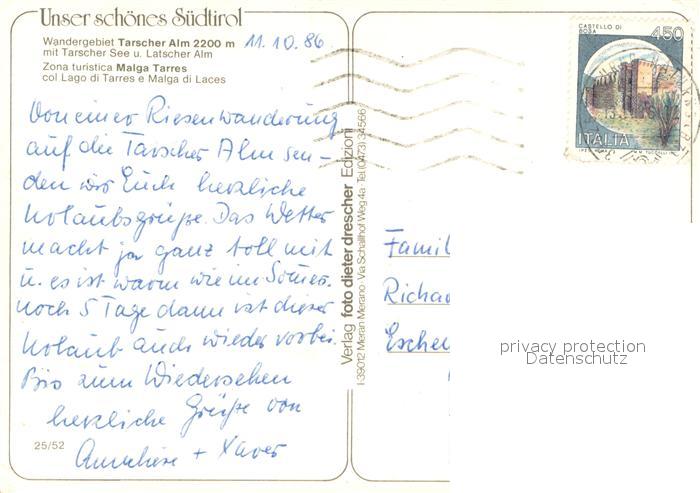 Unser schönes Südtirol
Wandergebiet Tarscher Alm 2200 m
mit Tarscher See u. Latscher Alm
Zona turistica Malga Tarres
col Lago di Tarres e Malga di Laces
11.10.86
Von einer Riesenwanderung
auf die Tarscher Alm sen-
den wir Euch herzliche
Urlaubsgrüße. Das Wetter
macht ja ganz toll mit
u. es ist warm wie im Sommer.
noch 5 Tage dann ist dieser
Urlaub auch wieder vorbei.
Bis zum Wiedersehen
herzliche Grüße von
Anneliese + Xaver
25/52
Verlag foto dieter drescher Edizioni
I-39012 Meran Merano · Via Schallhof Weg 4a · Tel. (0473) 34566
CASTELLO DI
ROSA
450
ITALIA
Famil
Richa
Esche
privacy protection
Datenschutz